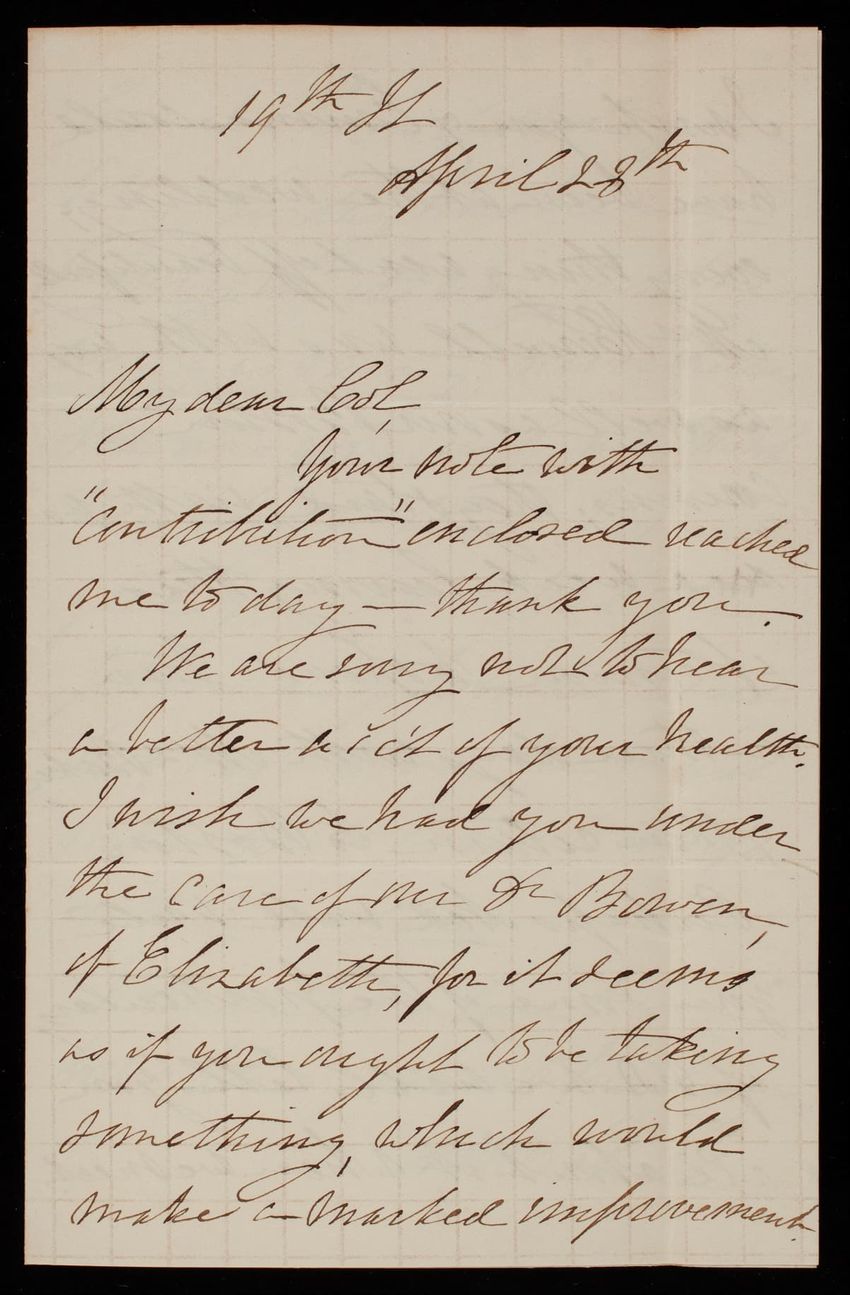 19th St
April 28th
My dear Col,
Your note with
"Contribution" enclosed reached
me to day — thank you.
We are sorry not to hear
a better acc't of your health.
I wish we had you under
the care of our Dr Bowen,
of Elizabeth, for it seems
as if you ought to be taking
something, which would
make a marked improvement.